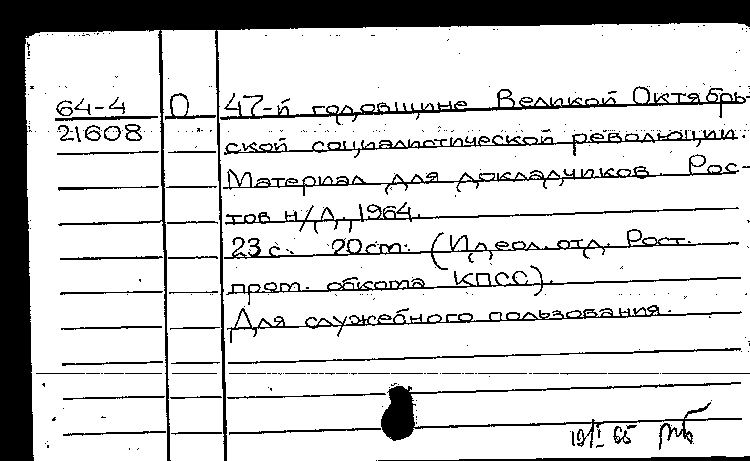 64-4 О 47-й годовщине Великой Октябрь-
21608 ской социалистической революции.
Материал для докладчиков. Рос-
тов н/Д., 1964.
23 с. 20 cm. (Идеол. отд. Рост.
пром. обкома КПСС).
Для служебного пользования.
19/I 65